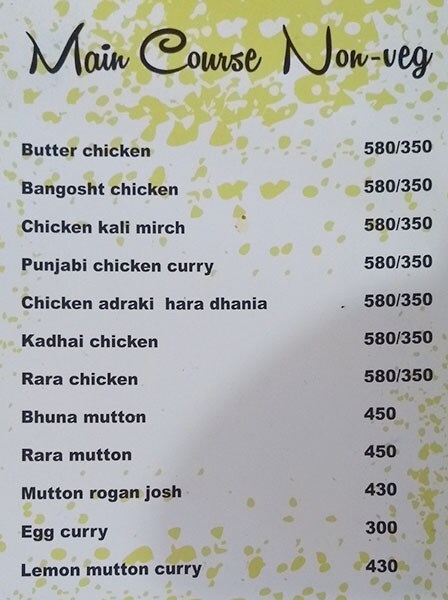 Main Course Non-veg
Butter chicken 580/350
Bangosht chicken 580/350
Chicken kali mirch 580/350
Punjabi chicken curry 580/350
Chicken adraki hara dhania 580/350
Kadhai chicken 580/350
Rara chicken 580/350
Bhuna mutton 450
Rara mutton 450
Mutton rogan josh 430
Egg curry 300
Lemon mutton curry 430